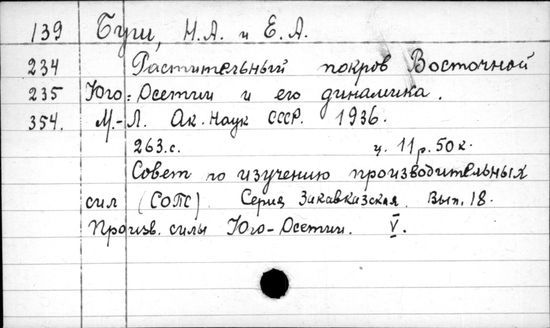 139 Буш, Н.А. и Е.А.
234 Растительный покров Восточной
235 Юго-Осетии и его динамика.
354. М.-Л. Ак. Наук СССР. 1936.
263.с. ц. 11 р. 50 к.
Совет по изучению производительных
сил (СОПС). Серия Закавказская. Вып. 18.
Произв. силы Юго-Осетии. V.